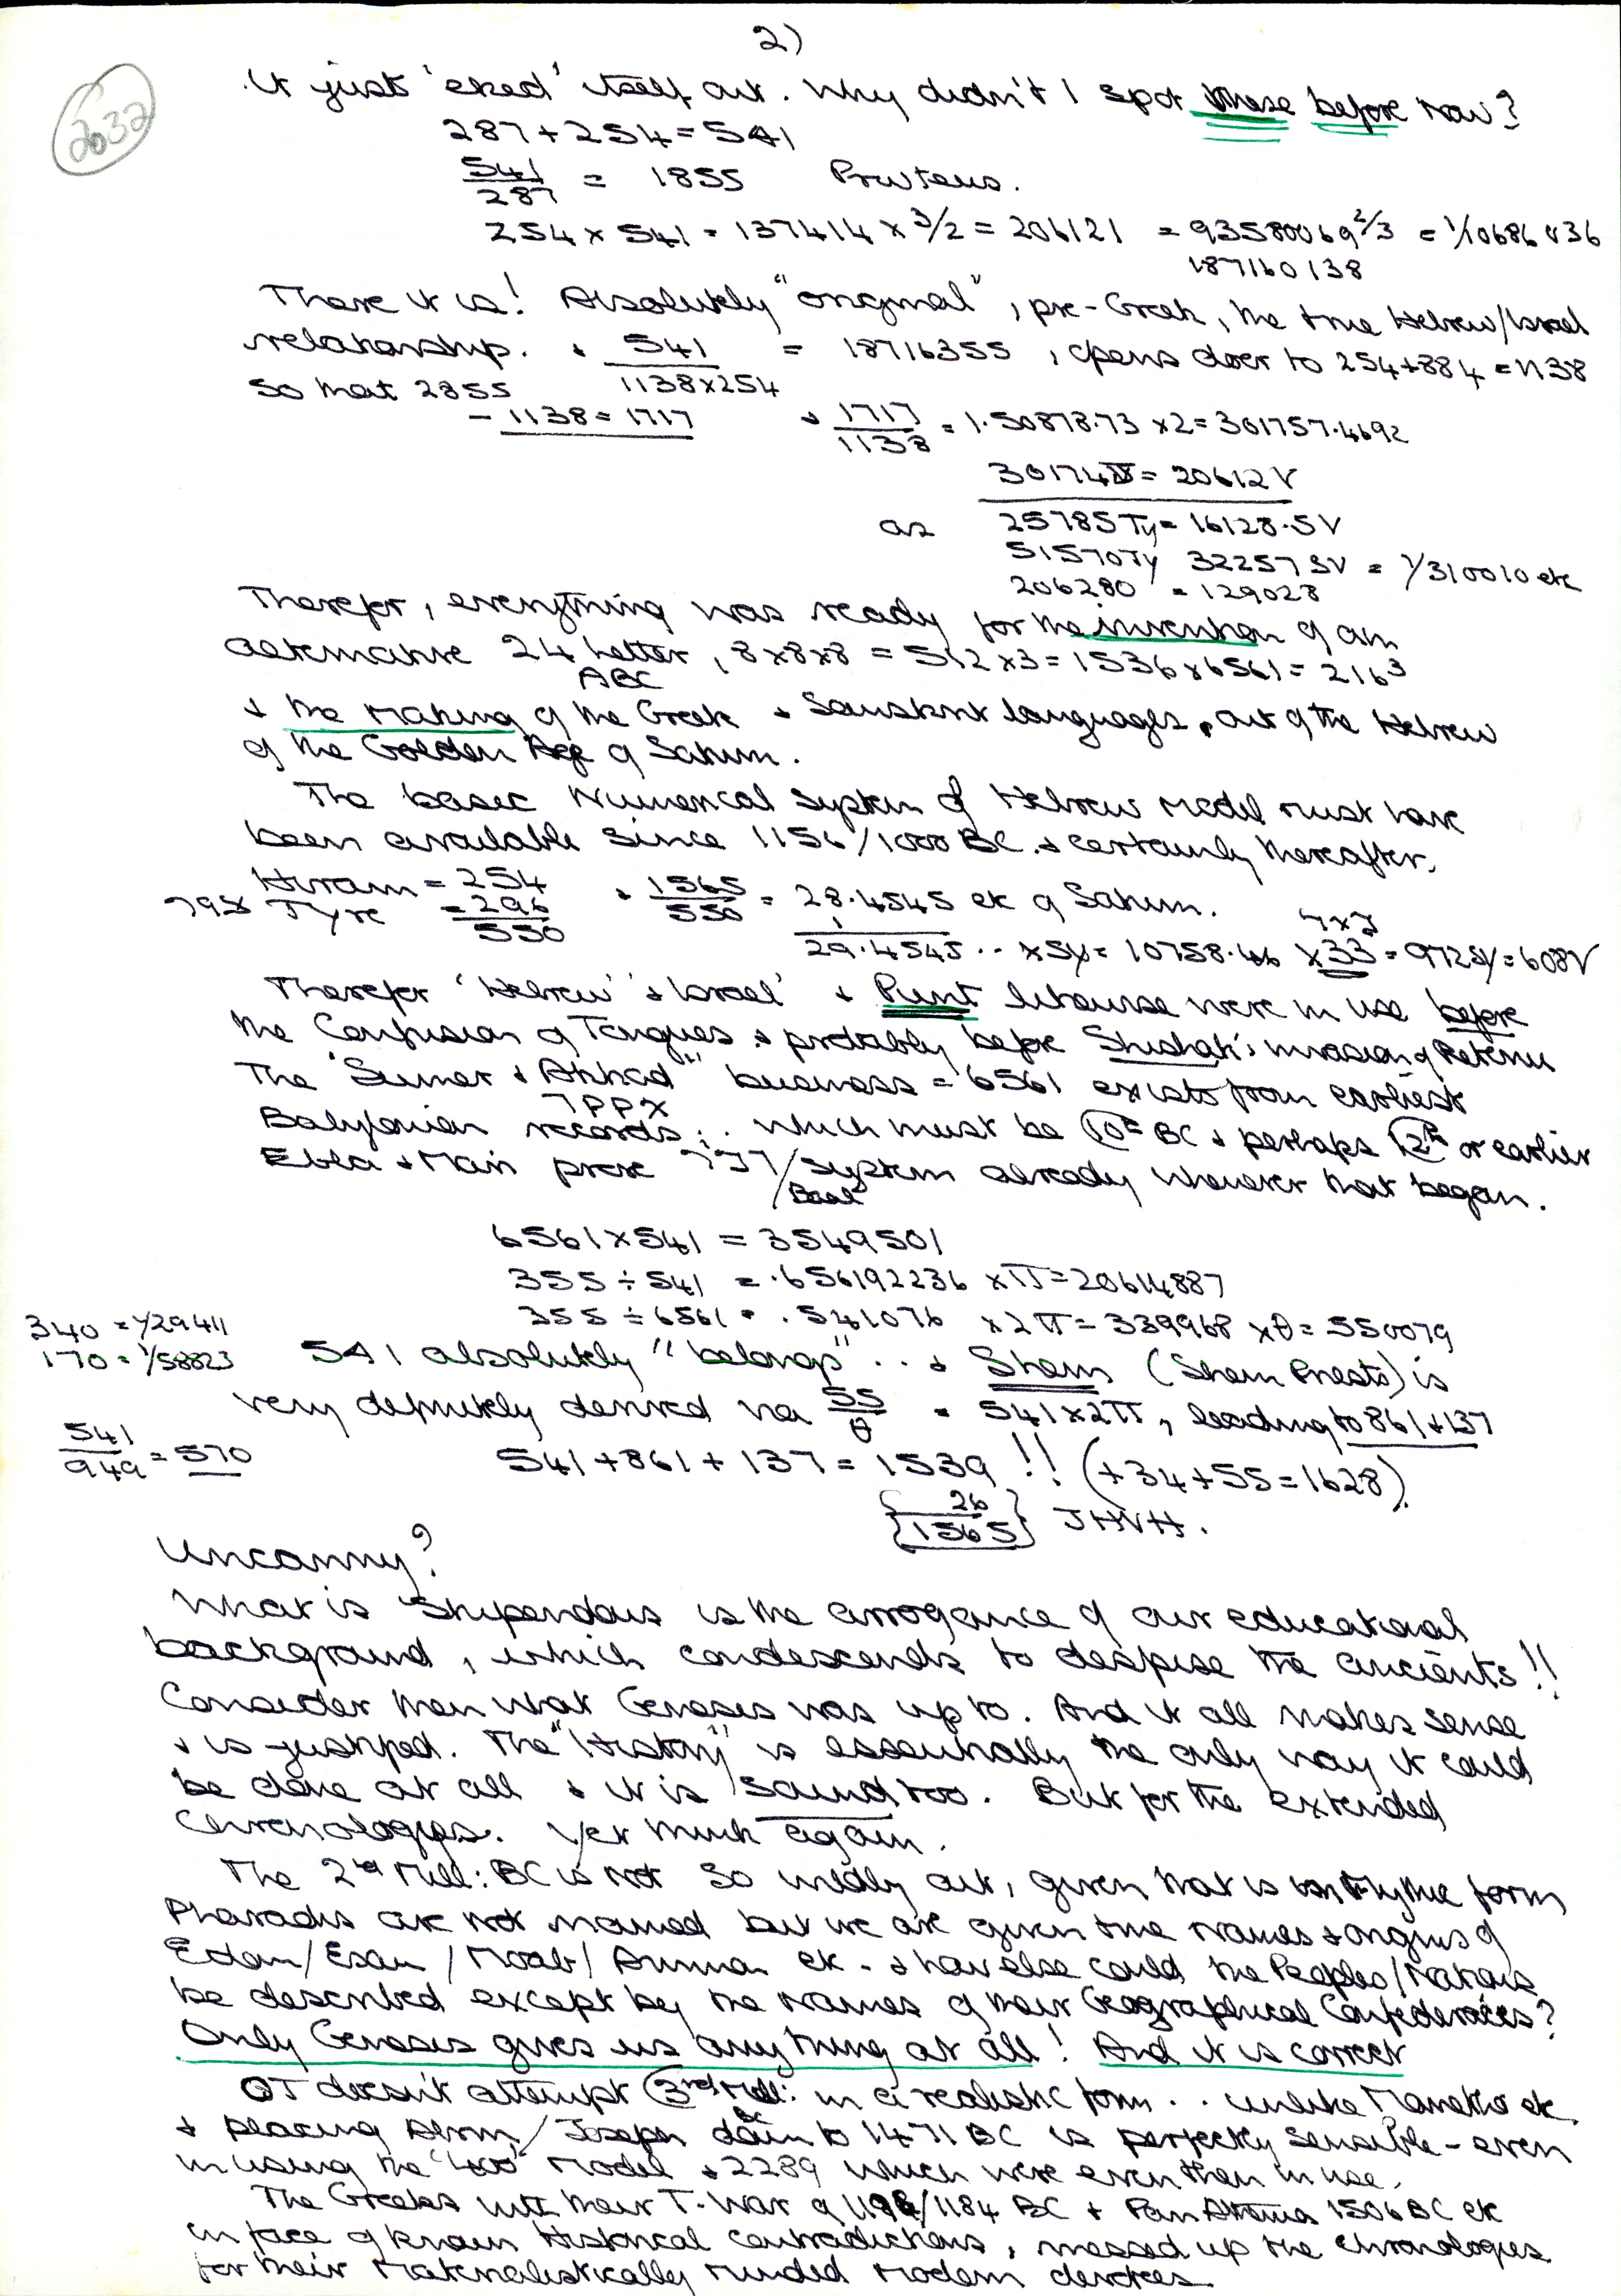 2)
2032
It just 'eked' itself out. Why didn't I spot these before now?
287 + 254 = 541
541/287 = 1855 Proteus.
254 x 541 = 137414 x 3/2 = 206121 = 93580069 2/3 = 1/10686836
187160138
There it is! Absolutely "original", pre-Greek, the true Hebrew/Israel
relationship. + 541/1138x254 = 18716355, opens door to 254+884 = 1138
so that 2855
- 1138 = 1717 + 1717/1138 = 1.50878.73 x2 = 301757.4692
30174 = 20612V
as 25785Ty = 16128.5V
51570Ty 322573V = 1/310010 etc
206280 = 129028
Therefor, everything was ready for the invention of an
alternative 24 letter, 8x8x8 = 512 x3 = 1536 x 6561 = 216³
ABC
+ the making of the Greek + Sanskrit languages, out of the Hebrew
of the Golden Age of Saturn.
The basic Numerical System of Hebrew model must have
been available since 1156/1000 BC + certainly thereafter.
Hiram = 254 + 1565/550 = 28.4545 etc of Saturn.
Tyre = 296
550
1/29.4545.. x Sy = 10758.46 x 33 = 972Sy = 608V
Therefor 'Hebrew' + Israel' + Punt likewise were in use before
the Confusion of Tongues + probably before Shishak's invasion of Retenu
The "Sumer + Akkad" business = 6561 exists from earliest
Babylonian records; .. which must be 10th BC + perhaps 12th or earlier
Ebla + Mari prove / system already wherever that began.
Baal
6561 x 541 = 3549501
355 ÷ 541 = .656192236 x π = 20614887
355 ÷ 6561 = .541076 x 2π = 339968 x θ = 550079
340 = 1/29411
170 = 1/58823
541 absolutely "belongs" .. + Shem (Shem Priests) is
very definitely derived via 55/θ = 541 x 2π, leading to 861 + 137
541/949 = 570
541 + 861 + 137 = 1539 !! (+34+55 = 1628).
{26/1565} JHVH.
Uncanny?
What is stupendous is the arrogance of our educational
background, which condescends to despise the ancients!!
Consider then what Genesis was up to. And it all makes sense
+ is justified. The "History" is essentially the only way it could
be done at all + it is sound too. But for the extended
Chronologies. Yet think again.
The 2nd Mill: BC is not so wildly out, given that is in the form
Pharaohs are not named but we are given the names + origins of
Edom/Esau/Moab/Ammon etc. + how else could the Peoples/Nations
be described except by the names of their Geographical Confederacies?
Only Genesis gives us anything at all! And it is correct
OT doesn't attempt 3rd Mill: BC in a realistic form .. unlike Manetho etc.
+ placing Abrm/Joseph down to 1471 BC is perfectly sensible - even
in using the "400" Model + 2289 which were even then in use.
The Greeks with their T-War of 1198/1184 BC + Pan Athenia 1506 BC etc
in face of known Historical contradictions, messed up the chronologies
for their Materialistically minded modern devotees.